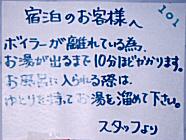 宿泊のお客様へ
101
ボイラーが離れている為、
お湯が出るまで10分ほどかかります。
お風呂に入られる際は
ゆとりを持ってお湯を溜めて下さい。
スタッフより